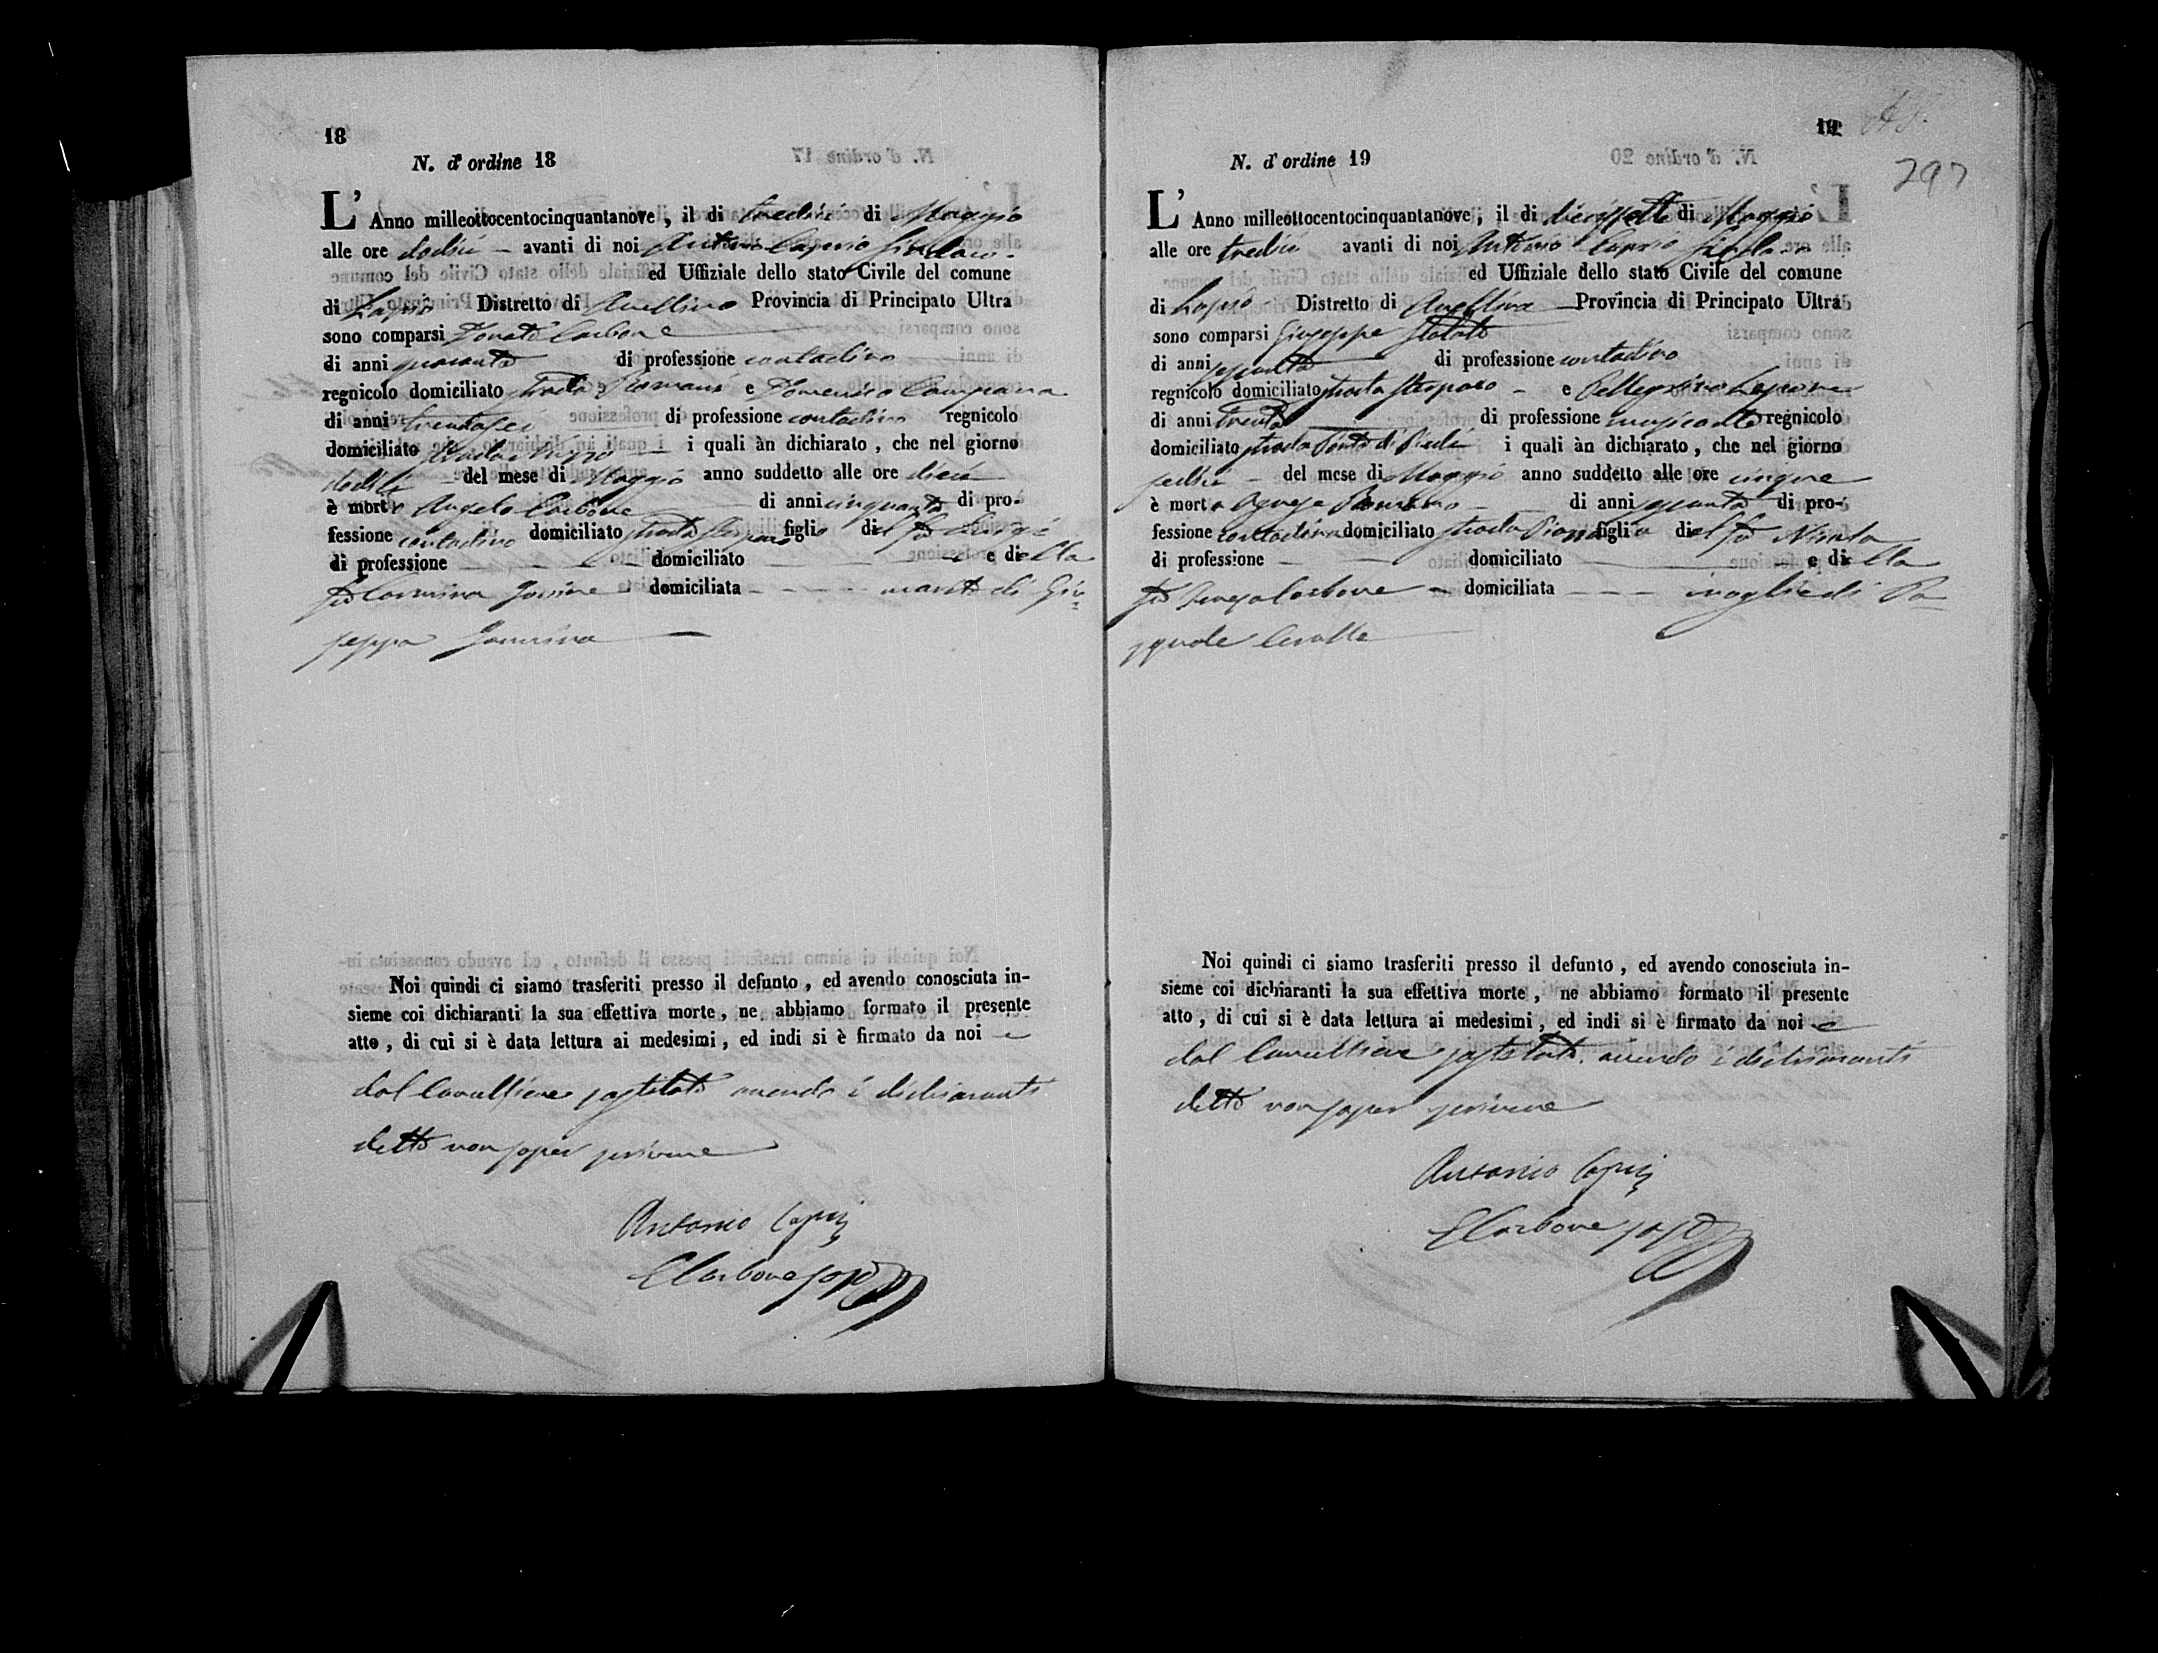 18
N. d' ordine 18
L' Anno milleottocentocinquantanove, il di tredici di Maggio
alle ore dodici avanti di noi Antonio Caprio Sindaco
ed Uffiziale dello stato Civile del comune
di Lapio Distretto di Avellino Provincia di Principato Ultra
sono comparsi Donato Carbone
di anni quaranta di professione contadino
regnicolo domiciliato strada Romani e Domenico Campana
di anni trentasei di professione contadino regnicolo
domiciliato strada i quali àn dichiarato, che nel giorno
dodici del mese di Maggio anno suddetto alle ore dieci
è morto Angelo Carbone di anni cinquanta di pro-
fessione contadino domiciliato strada figlio del fu Luigi
di professione domiciliato e della
fu Carmina domiciliata marito di Giu=
seppa
Noi quindi ci siamo trasferiti presso il defunto, ed avendo conosciuta in-
sieme coi dichiaranti la sua effettiva morte, ne abbiamo formato il presente
atto, di cui si è data lettura ai medesimi, ed indi si è firmato da noi e
dal Cancelliere sostituto avendo i dichiaranti
detto non saper scrivere
Antonio Caprio
Carbone sost
19
297
N. d' ordine 19
L' Anno milleottocentocinquantanove, il di diecissette di Maggio
alle ore tredici avanti di noi Antonio Caprio Sindaco
ed Uffiziale dello stato Civile del comune
di Lapio Distretto di Avellino Provincia di Principato Ultra
sono comparsi Giuseppe
di anni sessanta di professione contadino
regnicolo domiciliato strada e Pellegrino
di anni trenta di professione regnicolo
domiciliato strada i quali àn dichiarato, che nel giorno
sedici del mese di Maggio anno suddetto alle ore cinque
è morta Agnese Romano di anni sessanta di pro-
fessione contadina domiciliato strada figlia del fu Nicola
di professione domiciliato e della
fu Carbone domiciliata moglie di Pa=
squale
Noi quindi ci siamo trasferiti presso il defunto, ed avendo conosciuta in-
sieme coi dichiaranti la sua effettiva morte, ne abbiamo formato il presente
atto, di cui si è data lettura ai medesimi, ed indi si è firmato da noi e
dal Cancelliere sostituto avendo i dichiaranti
detto non saper scrivere
Antonio Caprio
Carbone sost